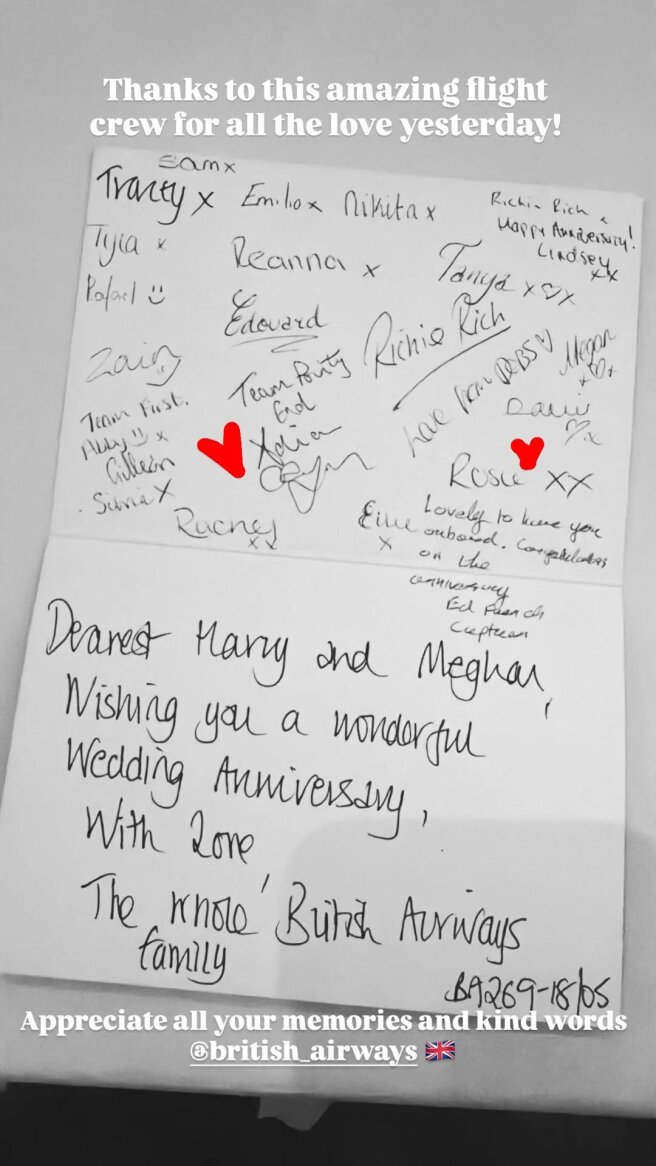 Thanks to this amazing flight
crew for all the love yesterday!
Samx
Tracey x Emilio x Nikita x
Richie Rich x
Happy Anniversary!
Lindsey
xx
Tyla x
Reanna x
Tanya x♡x
Rafael
Edouard
Richie Rich
Team Party
End
Love from DEBS ♡
Megan
Team First.
Gilleen
Silvia X
Rosie XX
xx
x
Lovely to have you
onboard. Congratulations
on the
anniversary
Ed French
Captain
Dearest Harry and Meghan,
Wishing you a wonderful
Wedding Anniversary,
With Love
The whole British Airways
family
BA269-18/05
Appreciate all your memories and kind words
@british_airways 🇬🇧